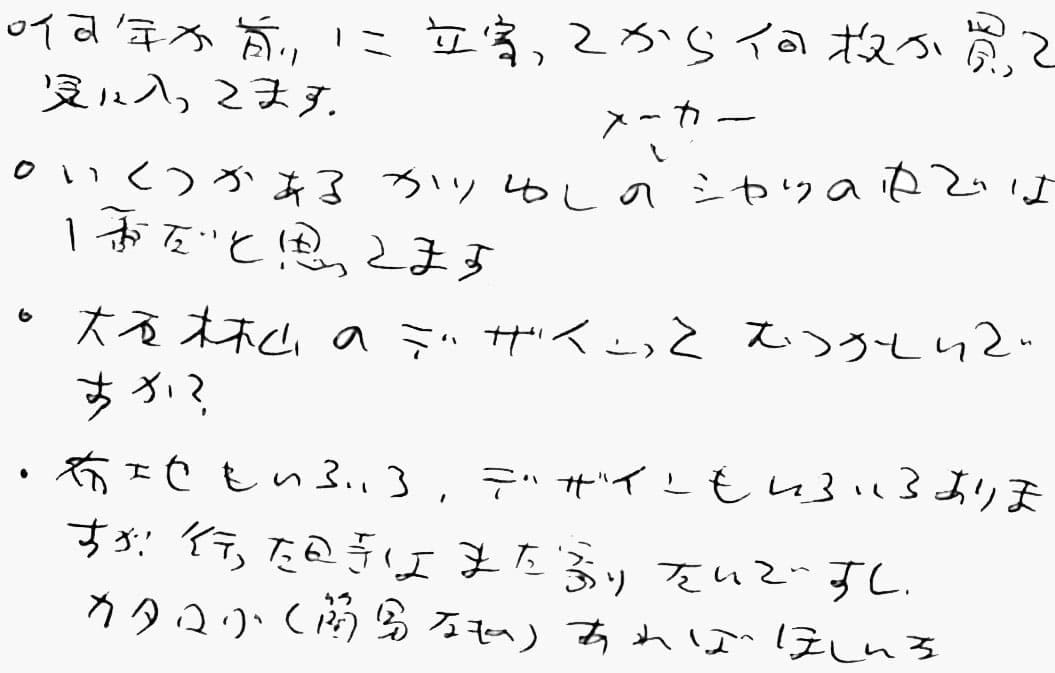 ○何年か前に立寄ってから何枚か買って
気に入ってます.
メーカー
○いくつかあるかりゆしのシャツの中では
1番だと思ってます
○大石林山のデザインってむつかしいで
すか?
・布地もいろいろ,デザインもいろいろありま
すが行った時はまた寄りたいですし.
カタログ(簡易なもの)あればほしいな